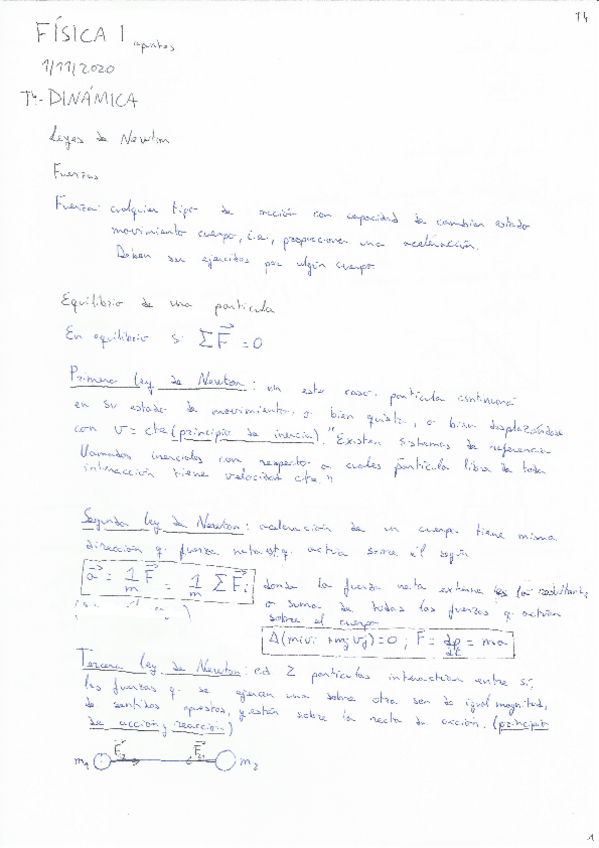 T4
FÍSICA I apuntes
1/11/2020
T4.- DINÁMICA
Leyes de Newton
Fuerzas
Fuerza: cualquier tipo de acción con capacidad de cambiar estado
movimiento cuerpo, i.e., proporcionar una aceleración.
Deben ser ejercidas por algún cuerpo
Equilibrio de una partícula
En equilibrio si ΣF⃗ = 0
Primera ley de Newton: en este caso, partícula continuará
en su estado de movimiento, o bien quieta, o bien desplazándose
con v = cte (principio de inercia). "Existen sistemas de referencia
llamados inerciales con respecto a cuales partícula libre de toda
interacción tiene velocidad cte."
Segunda ley de Newton: aceleración de un cuerpo tiene misma
dirección q. fuerza neta ext q. actúa sobre él según
a⃗ = 1/m F⃗ = 1/m ΣF⃗i donde la fuerza neta externa es la resultante
o suma de todas las fuerzas q actúan
sobre el cuerpo
Δ(mivi + mjvj) = 0 ; F = dp/dt = ma
Tercera ley de Newton: 2 partículas interactúan entre sí,
las fuerzas q. se ejercen una sobre otra son de igual magnitud,
de sentidos opuestos, y están sobre la recta de acción. (principio
de acción y reacción)
m1 m2
1